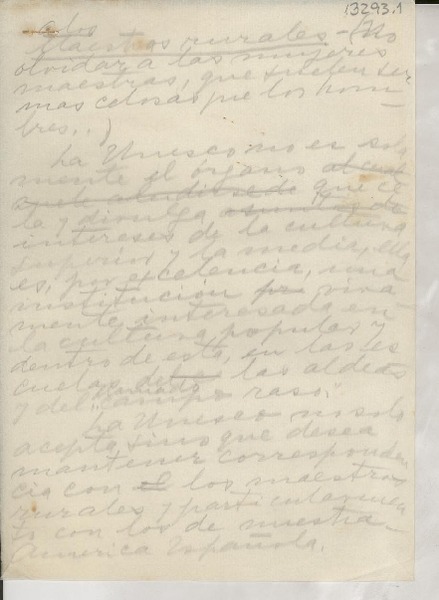 13293.1
a los
Maestros rurales - (No
olvidar a las mujeres
maestras, que suelen ser
mas celosas que los hom-
bres..)
La Unesco no es sola
mente el órgano al cual
que ce
la y divulga asuntos de
intereses de la cultura
superior y la media, ella
es, por excelencia, una
institución viva
mente interesada en
la cultura popular y
dentro de esta, en las es
cuelas de las aldeas
y del "llamado campo raso."
La Unesco no solo
acepta sino que desea
mantener corresponden
cia con los maestros
rurales y particularmen
te con los de nuestra
América Española.